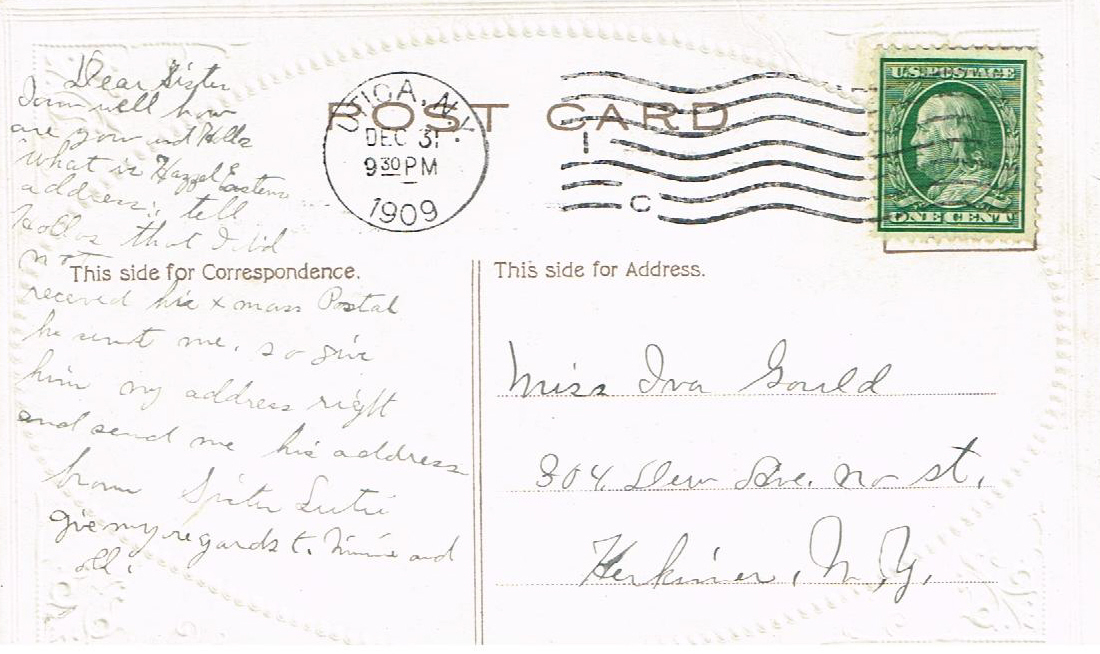 POST CARD
UTICA, N.Y.
DEC 31
9 30 PM
1909
C
U.S. POSTAGE
ONE CENT
Dear Sister
I am well how
are you and
what is Hazzel
address, tell
that I did
not
This side for Correspondence.
receved his xmass Postal
he sent me, so give
him my address right
and send me his address
from Sister
give my regards t. Minnie and
all.
This side for Address.
Miss Iva Gould
304 Ave. No St.
Herkimer, N.Y.